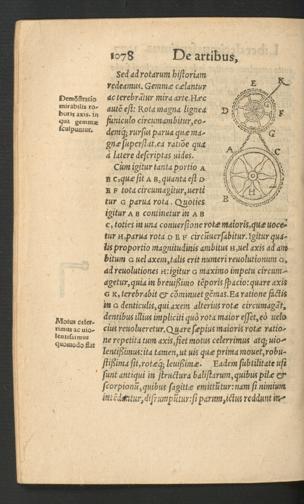 1078 De artibus,
Sed ad rotarum historiam
redeamus. Gemmæ cælantur
ac terebrãtur mira arte. Hæc
autē est: Rota magna lignea
funiculo circumambitur, eo-
demq; rursus parua quæ ma-
gnæ superstat, ea ratiõe quã
à latere descriptas uides.
Cùm igitur tanta portio A
B C, quæ sit A B, quanta est D
E F tota circumagitur, uerti
tur G parua rota. Quoties
igitur A B continetur in A B
C, toties in una conuersione rotæ maioris, quæ uoce-
tur H, parua rota D E F circũuersabitur. Igitur qua-
lis proportio magnitudinis ambitus H, uel axis ad am
bitum G uel axem, talis erit numeri reuolutionum G,
ad reuolutiones H: igitur G maximo impetu circum-
agetur, quia in breuissimo tēporis spacio: quare axis
G K, terebrabit & cõminuet gēmas. Ea ratione factis
in G denticulis, qui axem alterius rotæ circumagãt,
dentibus illius impliciti quò rota maior esset, eò uelo
cius reuolueretur. Quare sæpius maioris rotæ ratio-
ne repetita tum axis, fiet motus celerrimus atq; uio-
lentissimus: ita tamen, ut uis quæ prima mouet, robu-
stissima sit, rotæq; leuissimæ. Eadem subtilitate usi
sunt antiqui in structura balistarum, quibus pilæ &
scorpionũ, quibus sagittæ emittũtur: nam si nimium
intēdãtur, disrumpũtur: si parum, ictus reddunt in-
Demõstratio
mirabilis ro-
buris axis. in
qua gemmæ
sculpuntur.
Motus celer-
rimus ac uio-
lentissimus
quomodo fiat
E
K
D
G
F
A
C
H
B